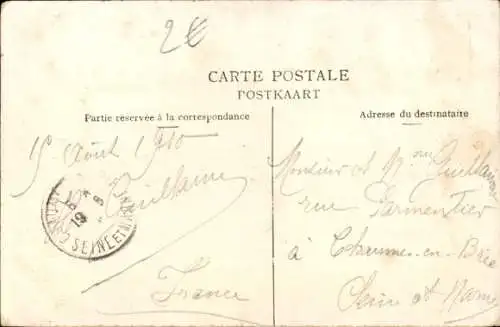 2€
CARTE POSTALE
POSTKAART
Partie réservée à la correspondance
Adresse du destinataire
15 Août 1910
Guillaume
France
SEINE ET MARNE
Monsieur et Mme Guillaume
rue Parmentier
à Chaumes-en-Brie
Seine et Marne